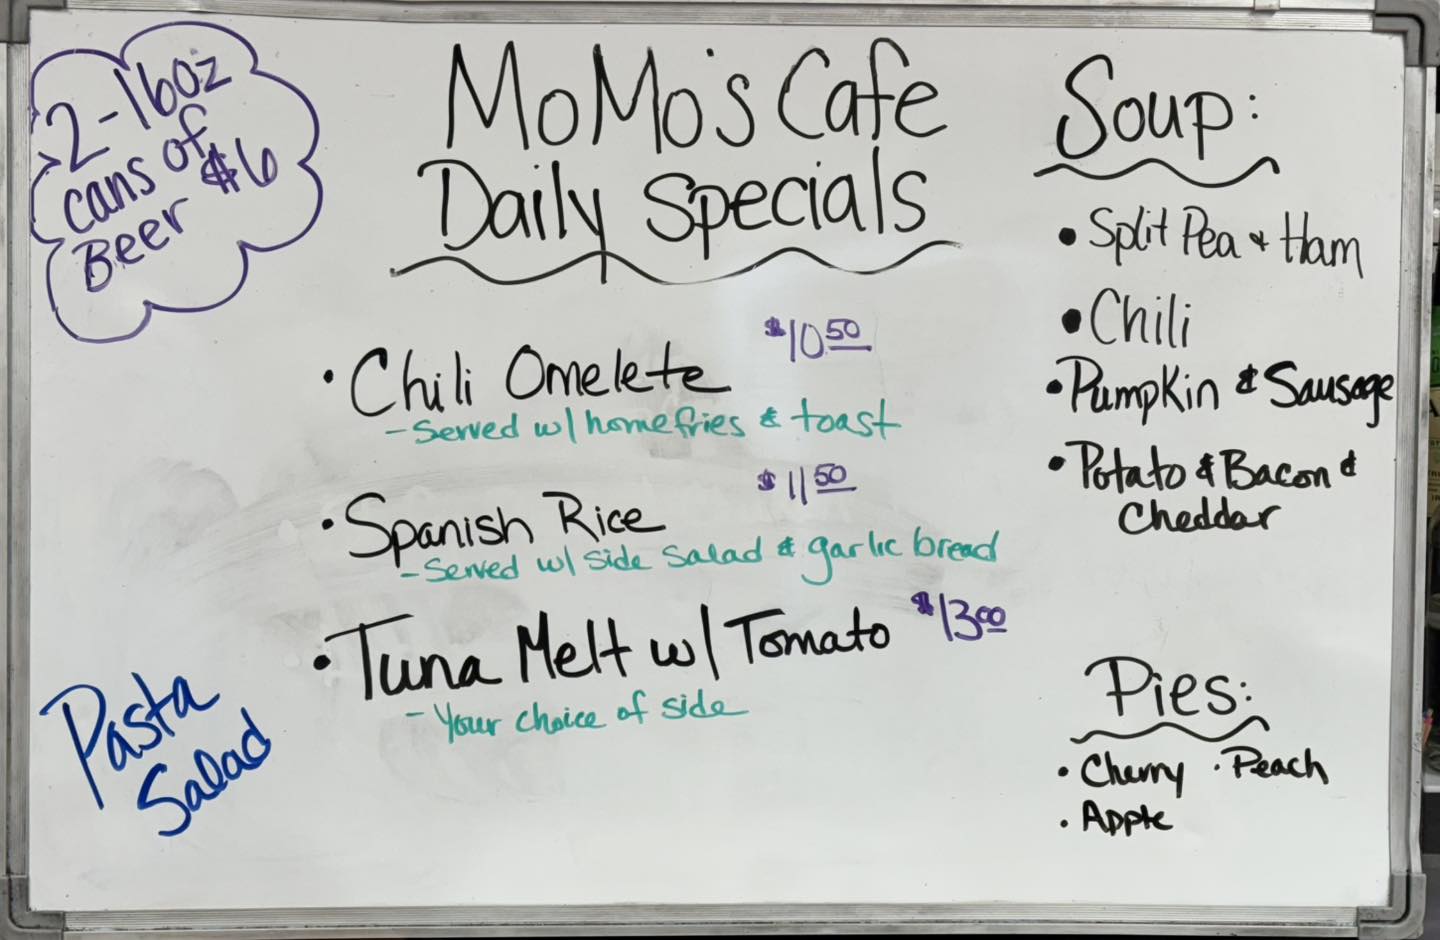 2-16oz
cans of
Beer $6
MoMo's Cafe
Daily Specials
• Chili Omelete $10.50
- Served w/ homefries & toast
• Spanish Rice $11.50
- Served w/ side salad & garlic bread
• Tuna Melt w/ Tomato $13.00
- Your choice of side
Pasta
Salad
Soup:
• Split Pea & Ham
• Chili
• Pumpkin & Sausage
• Potato & Bacon &
Cheddar
Pies:
• Cherry • Peach
• Apple